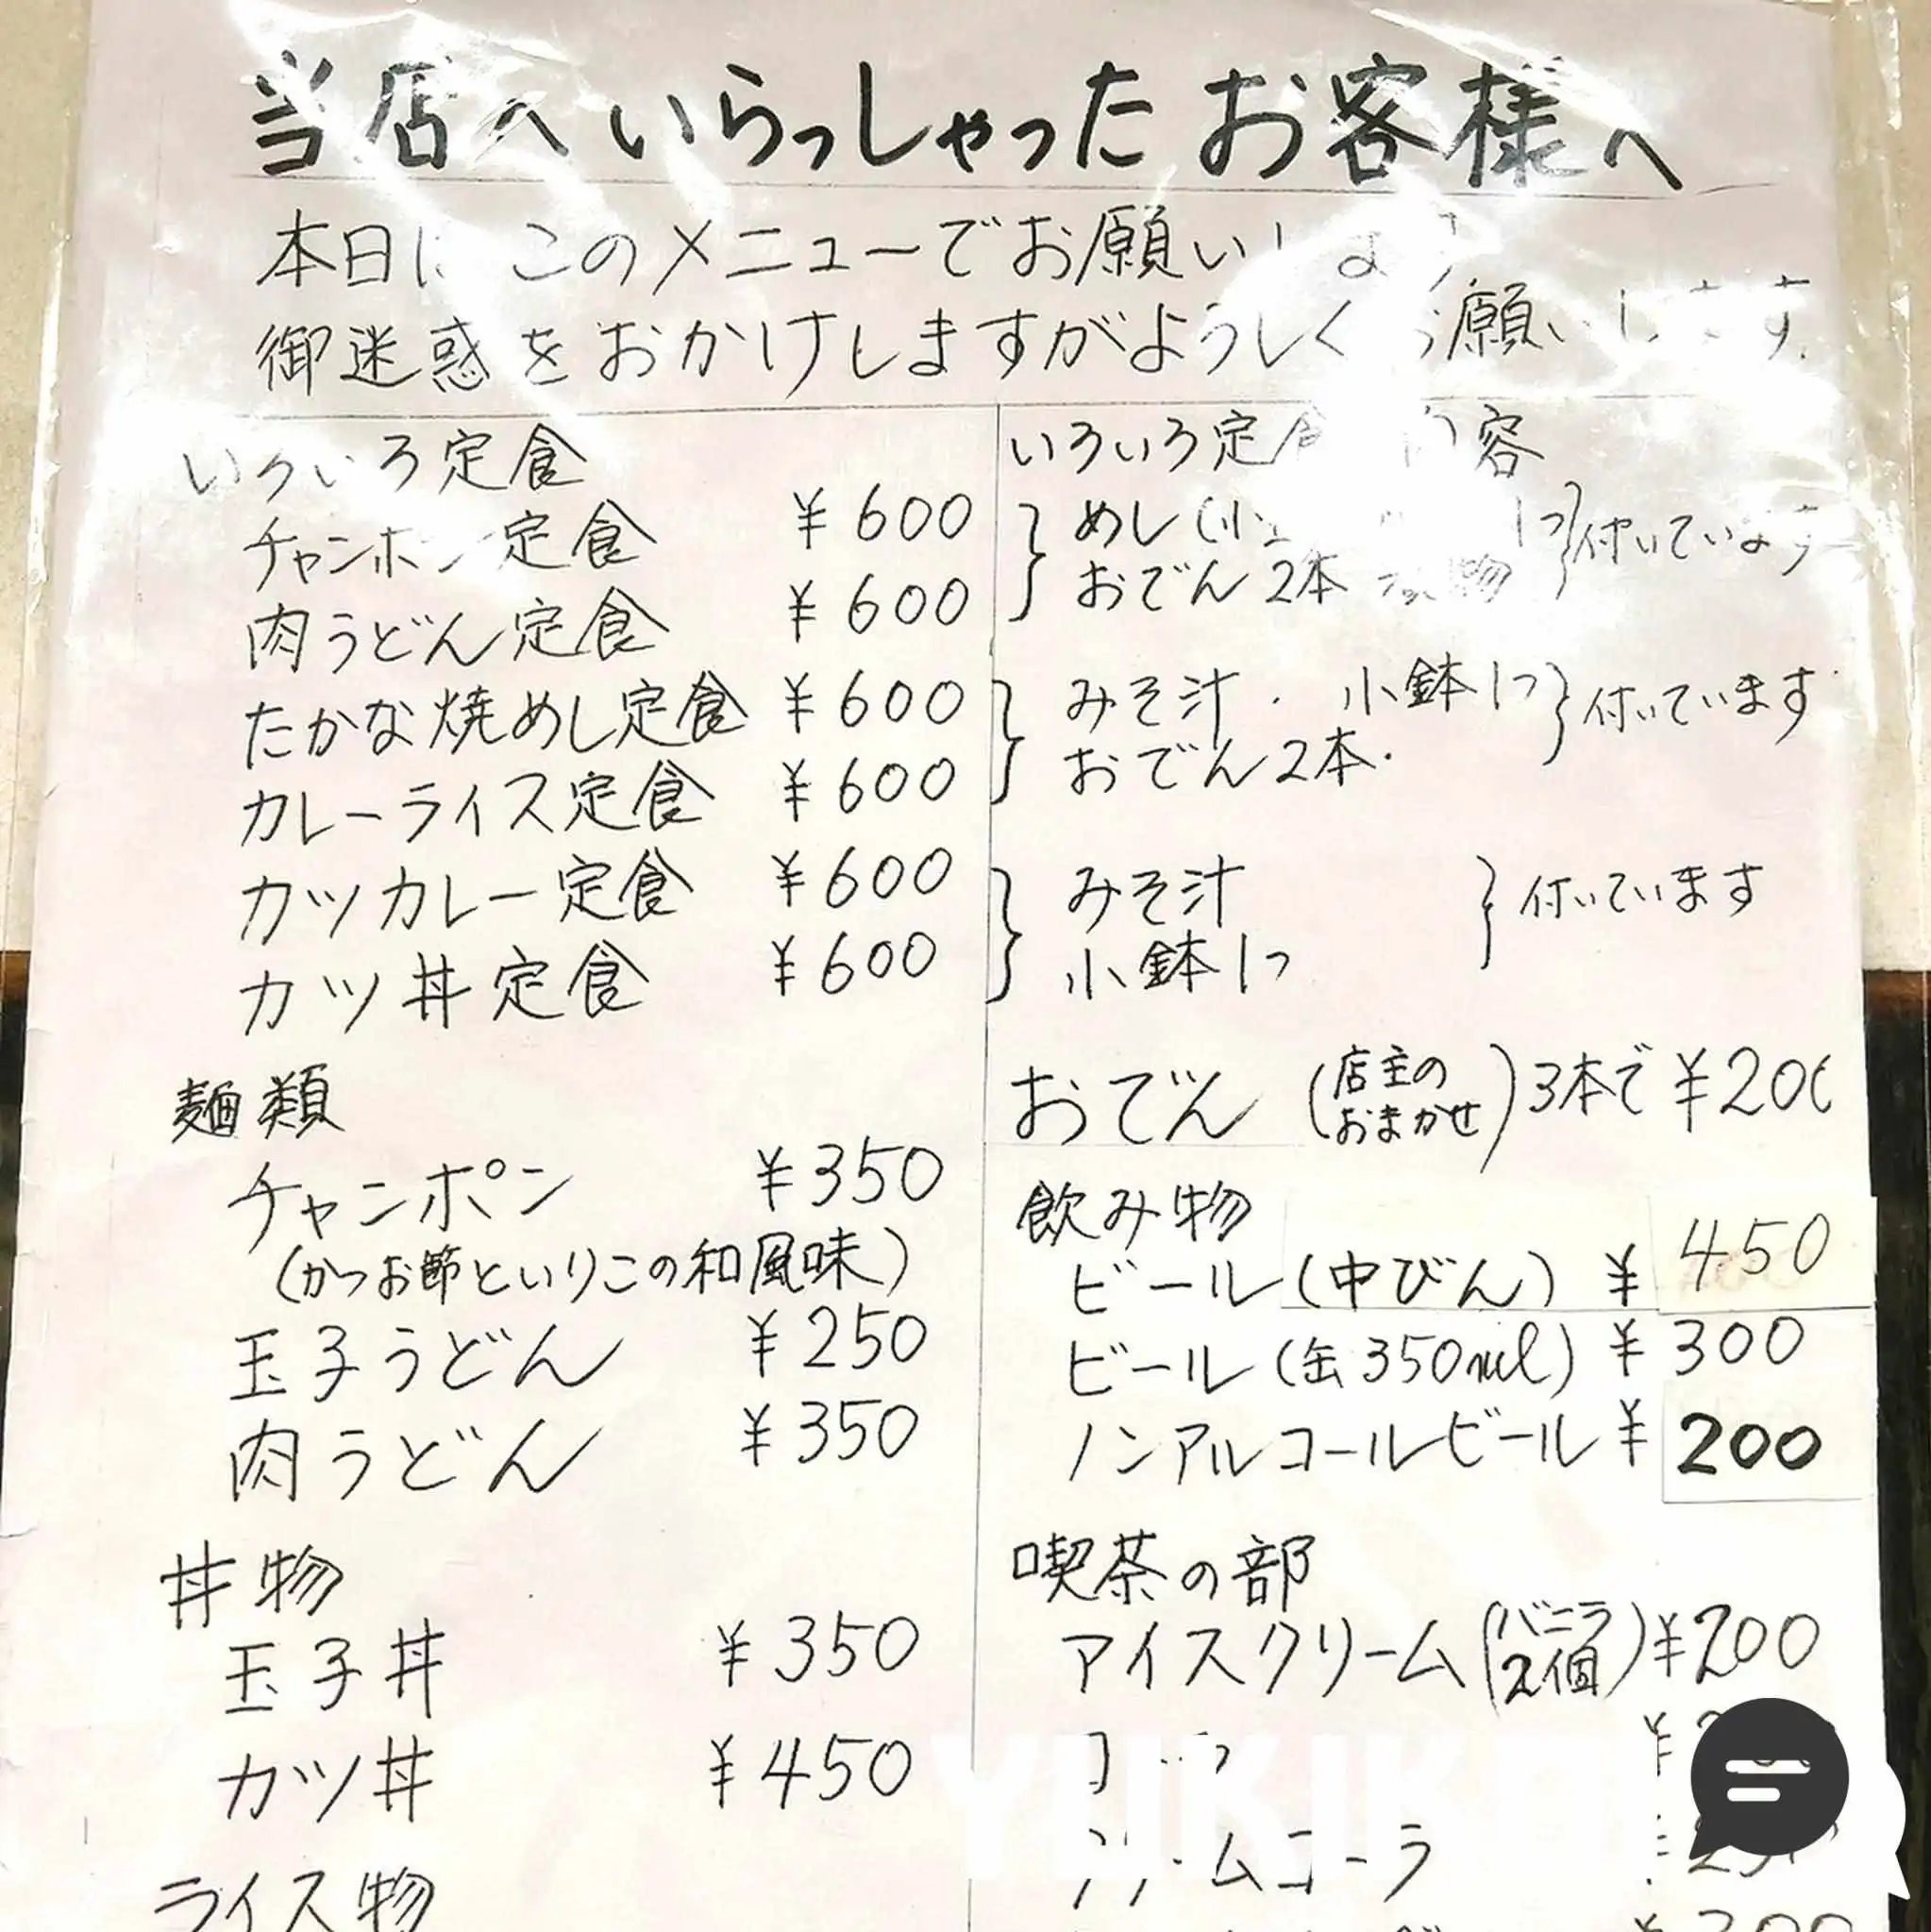 当店へいらっしゃったお客様へ
本日は このメニューでお願いします
御迷惑をおかけしますがよろしくお願いします.
いろいろ定食
チャンポン定食 ¥600
肉うどん定食 ¥600
たかな焼めし定食 ¥600
カレーライス定食 ¥600
カツカレー定食 ¥600
カツ丼定食 ¥600
麺類
チャンポン ¥350
(かつお節といりこの和風味)
玉子うどん ¥250
肉うどん ¥350
丼物
玉子丼 ¥350
カツ丼 ¥450
ライス物
いろいろ定食 内容
めし 1つ 付いています
おでん2本 漬物
みそ汁・ 小鉢1つ 付いています
おでん2本・
みそ汁 付いています
小鉢1つ
おでん (店主のおまかせ) 3本で ¥200
飲み物
ビール(中びん) ¥450
ビール(缶350ml) ¥300
ノンアルコールビール ¥200
喫茶の部
アイスクリーム(バニラ2個) ¥200
コーラ
クリームコーラ